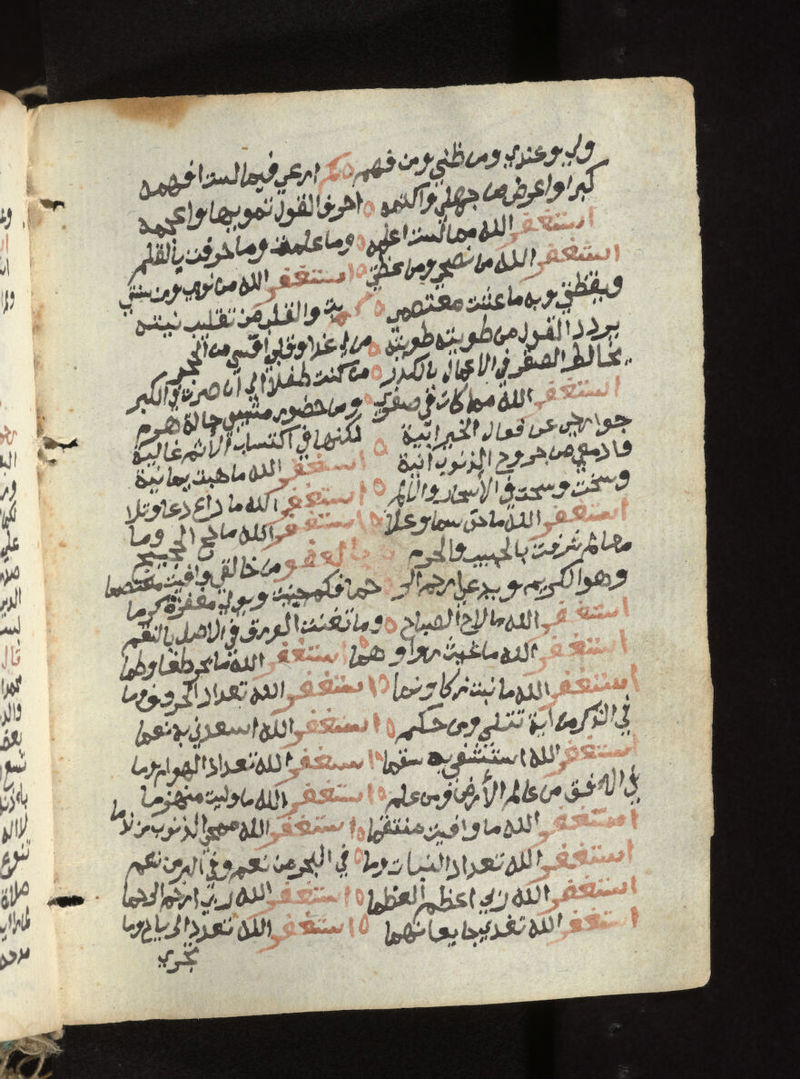 ولي وعندي ومن ظني ومن فهمي كم ادعي فيما لست افهمه
كبرا واعرض من جهلي واكتمه احرف القول تمويها واعجمه
استغفر الله مما لست اعلمه وما علمت وما حرفت بالقلم
استغفر الله من نصحي ومن عظتي استغفر الله من نومي ومن سنتي
ويقظتي وبه ما عشت معتصمي كم بت والقلب من تقليب نيته
يردد القول من طويته طويته من لي غدا وقلبي اقسى من الحجر
يخالط الصفو في الاعمال بالكدر من كنت طفلا الي ان صرت في الكبر
استغفر الله مما كان في صغري ومن حضور مشيبي حالة هرم
جوارحي عن فعال الخير ابية لكنها في اكتساب الاثم غالية
وادمعي من جروح الذنوب انية استغفر الله ما هبت يمانية
وسخت وسحت في الاسحار والـ استغفر الله ما داع دعا وتلا
استغفر الله ما حق سما وعلا استغفر الله ما لاح الحجيج وما
معالم شرفت بالحبيب والحرم بالعفو من خالقي وافيت معتصما
وهو الكريم ويدعي ارحم الر حما فكم جنيت ويولي مغفرة كرما
استغفر الله ما لاح الصباح وما تغنت الورق في الاصل بالنغم
استغفر الله ما غيث روا وهما استغفر الله ما بحر طغا وطما
استغفر الله ما نبت زكا ونما استغفر الله تعداد الحروف وما
في الذكر من اية تتلى ومن حكم استغفر الله اسعدني به نعما
استغفر الله استشفي به سقما استغفر الله تعداد الهوام وما
في الافق من عالم الأرض ومن علم استغفر الله ما وليت منهزما
استغفر الله ما وافيت منتقما استغفر الله ممحي الذنوب من لاما
استغفر الله تعداد النبات وما في البحر من نعم وفي البر من نعم
استغفر الله ربي اعظم العظما استغفر الله ربي ارحم الرحما
استغفر الله تغدي جايعا نهما استغفر الله تعدد الرياح وما
تجري